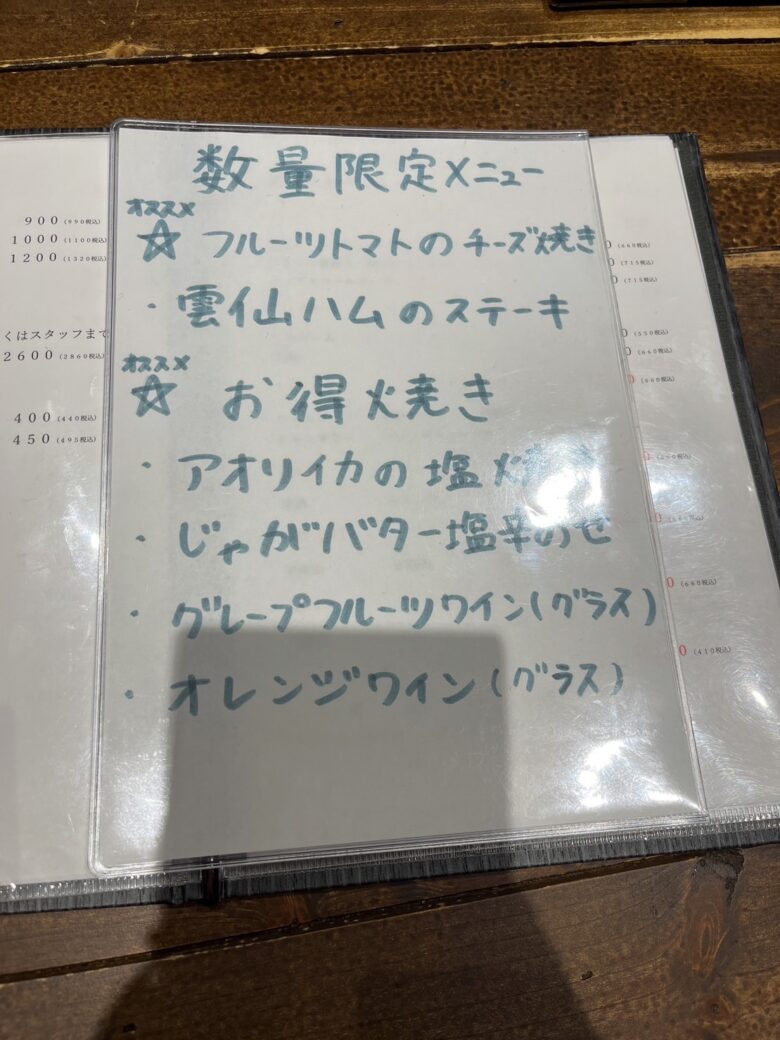 数量限定メニュー
オススメ
☆ フルーツトマトのチーズ焼き
・雲仙ハムのステーキ
オススメ
☆ お得焼き
・アオリイカの塩焼き
・じゃがバター塩辛のせ
・グレープフルーツワイン(グラス)
・オレンジワイン(グラス)
900(990税込)
1000(1100税込)
1200(1320税込)
くはスタッフまで
2600(2860税込)
400(440税込)
450(495税込)
0(660税込)
0(715税込)
0(715税込)
0(550税込)
0(660税込)
0(660税込)
0(660税込)
0(410税込)